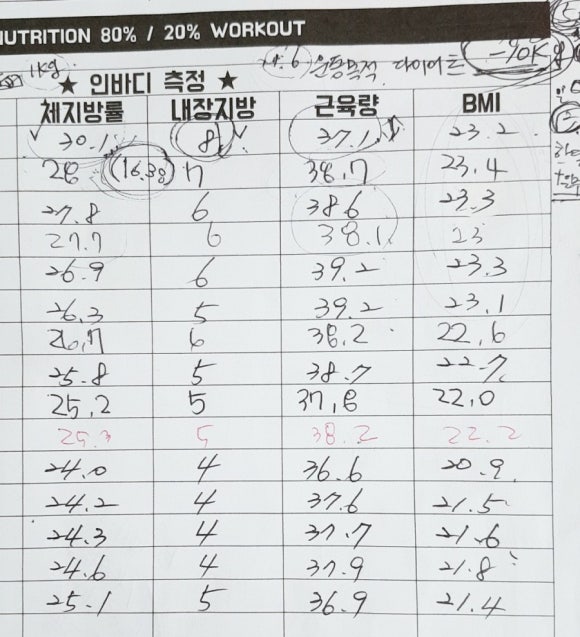 NUTRITION 80% / 20% WORKOUT
1kg 운동목적 다이어트 -10kg
★ 인바디 측정 ★
체지방률 내장지방 근육량 BMI
30.1 8 37.1 23.2
28 (16.38) 7 38.7 23.4
27.8 6 38.6 23.3
27.7 6 38.1 23
26.9 6 39.2 23.3
26.3 5 39.2 23.1
26.7 6 38.2 22.6
25.8 5 38.7 22.7
25.2 5 37.8 22.0
25.3 5 38.2 22.2
24.0 4 36.6 20.9
24.2 4 37.6 21.5
24.3 4 37.7 21.6
24.6 4 37.9 21.8
25.1 5 36.9 21.4